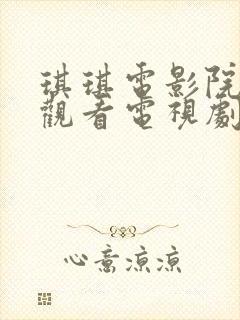 琪琪電影院
觀看電視劇
心意涼涼